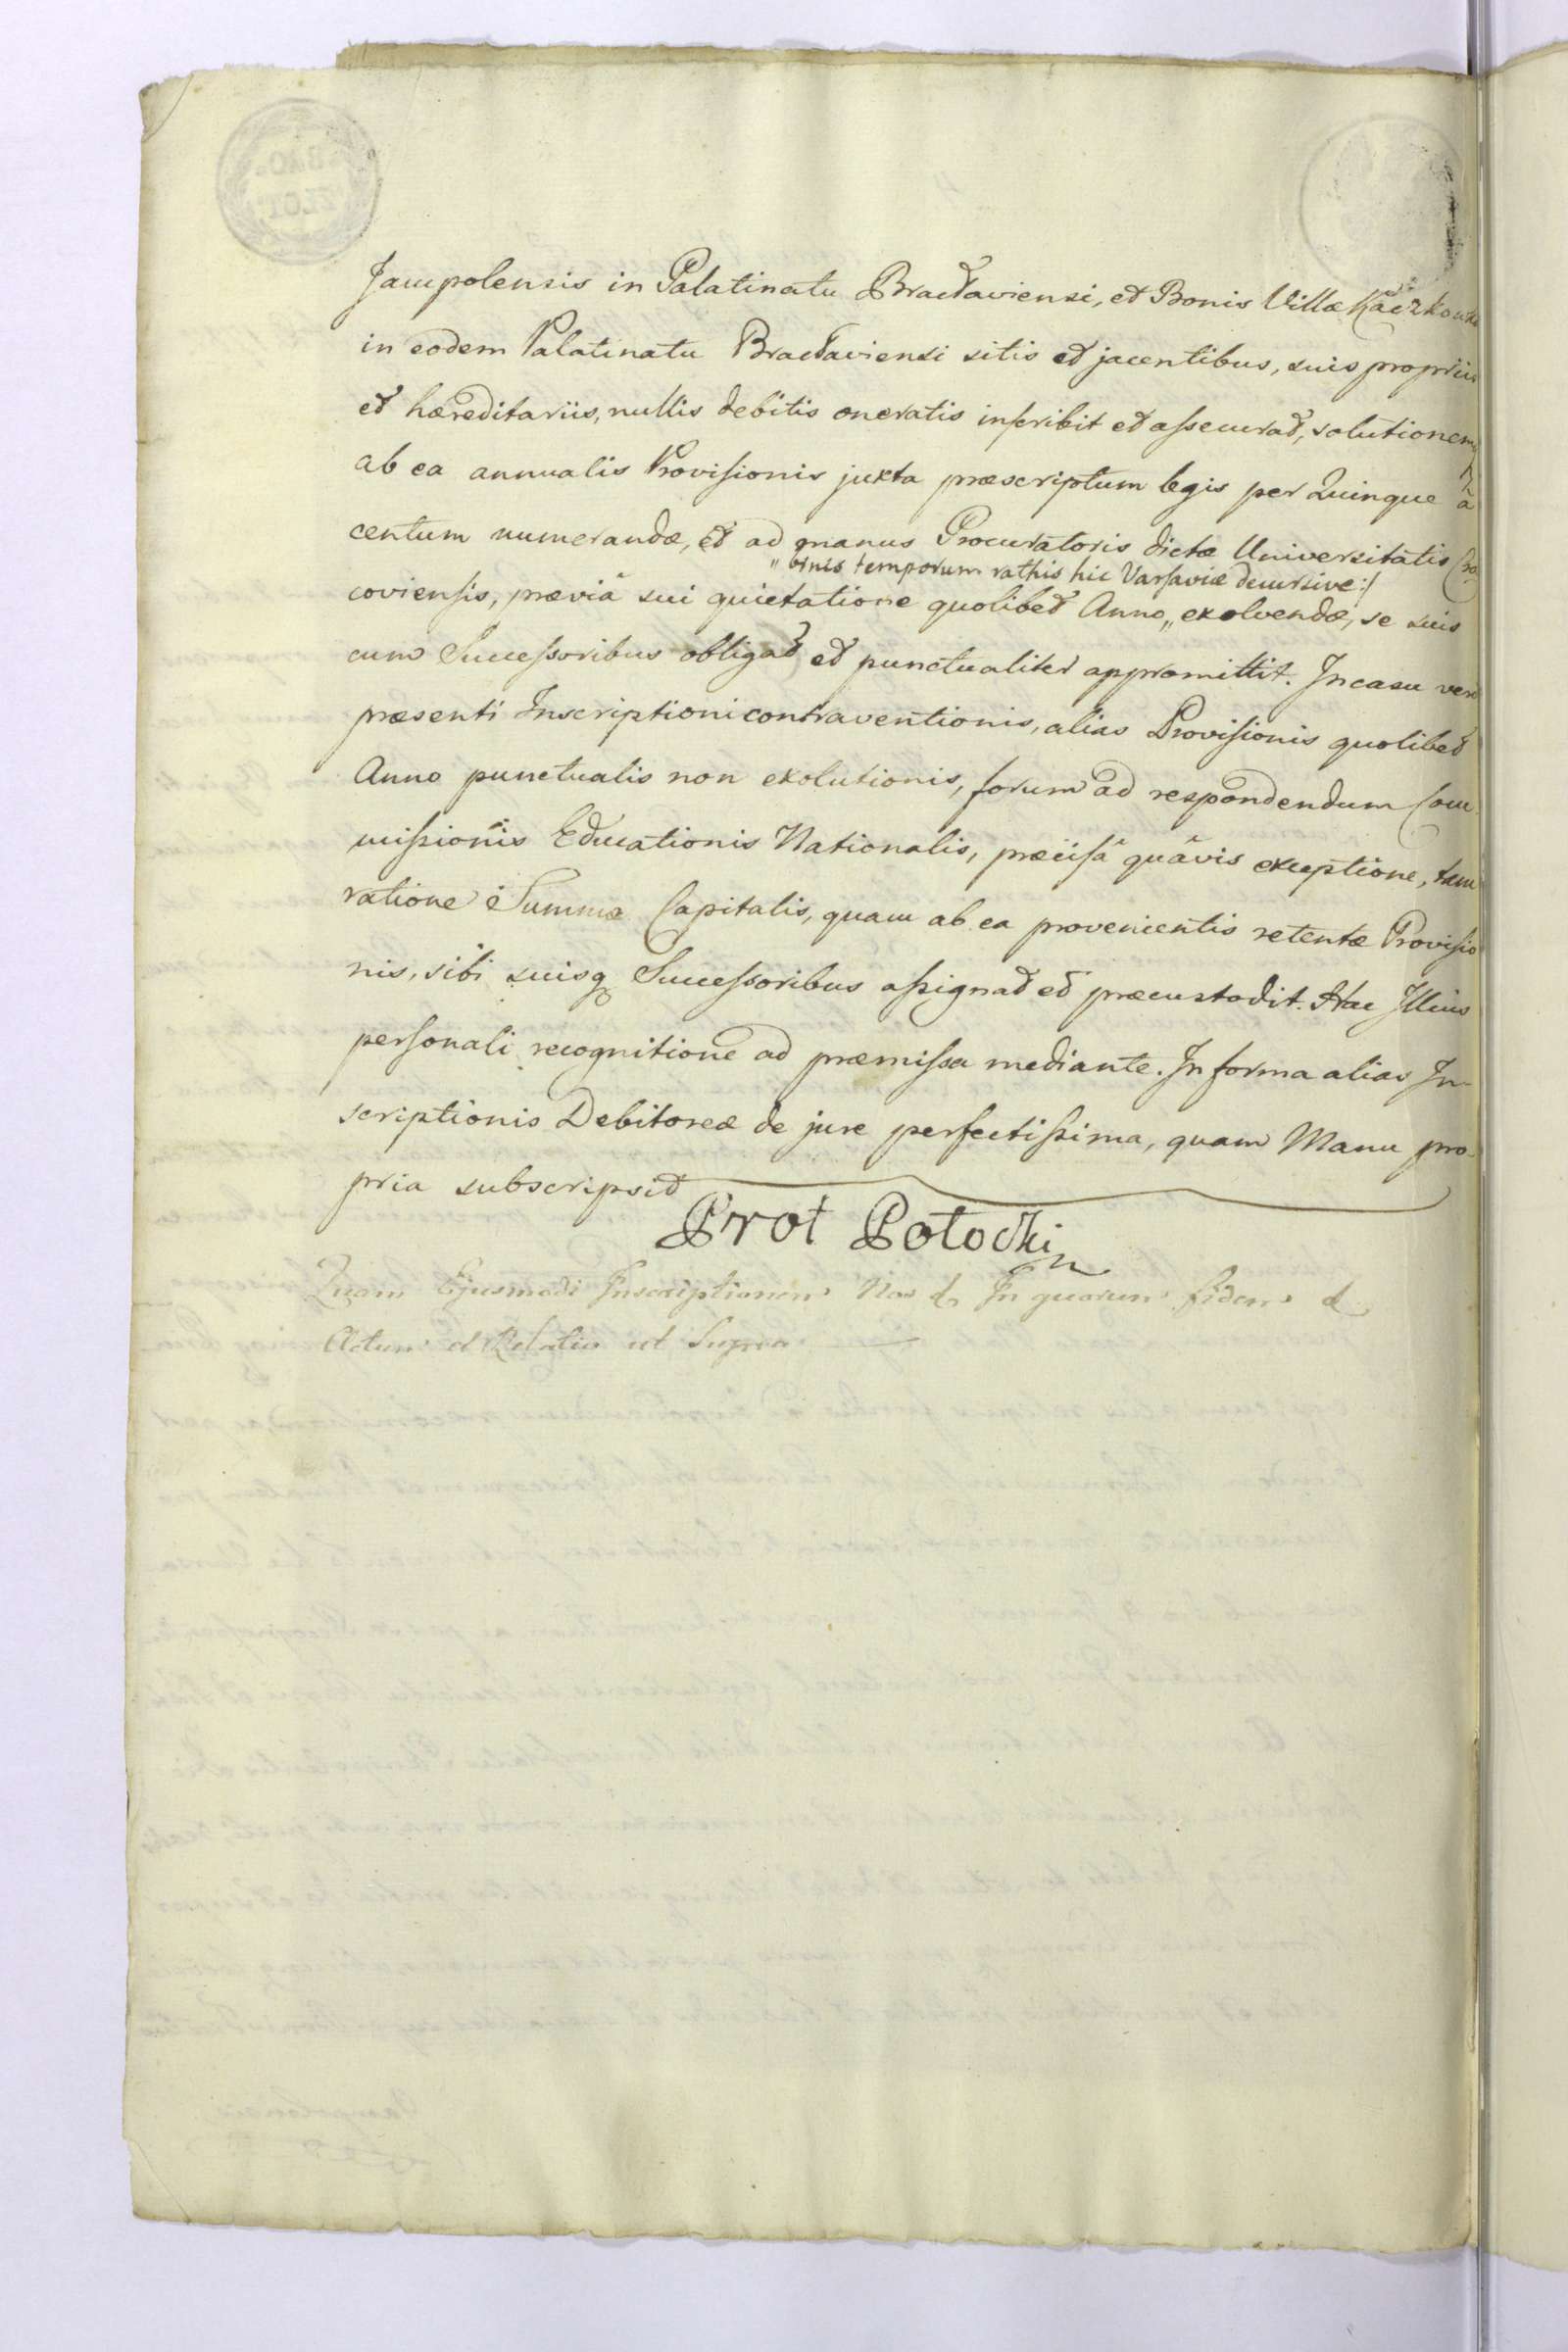 Jampolensis in Palatinatu Bracłaviensi, et Bonis Villæ
in eodem Palatinatu Bracłaviensi sitis et jacentibus, suis propriis
et hæreditariis, nullis debitis oneratis inſcribit et aſsecurat, solutionem
ab ea annualis Proviſionis juxta præscriptum legis per Quinque à
centum numerandæ, et ad manus Procuratoris dictæ Universitatis Cra
" binis temporum rathis hic Varſaviæ decursive :/
covienſis, præviâ sui quietatione quolibet Anno „ exolvendæ, se suis
cum Succeſsoribus obligat et punctualiter appromittit. In casu vero
præsenti Inscriptioni contraventionis, alias Proviſionis quolibet
Anno punctualis non exolutionis, forum ad respondendum Com
miſsionis Educationis Nationalis, præciſâ quâvis exceptione, tam
ratione Summæ Capitalis, quam ab ea provenientis retentæ Proviſio
nis, sibi suisq Succeſsoribus aſsignat et præcustodit. Hac Illius
perſonali recognitione ad præmiſsa mediante. In forma alias In-
scriptionis Debitoreæ de jure perfectiſsima, quam Manu pro-
pria subscripsit
Prot Potocki
Quam Ejusmodi Inscriptionem Nos & In quorum fidem &
Actum et Relatio ut Supra